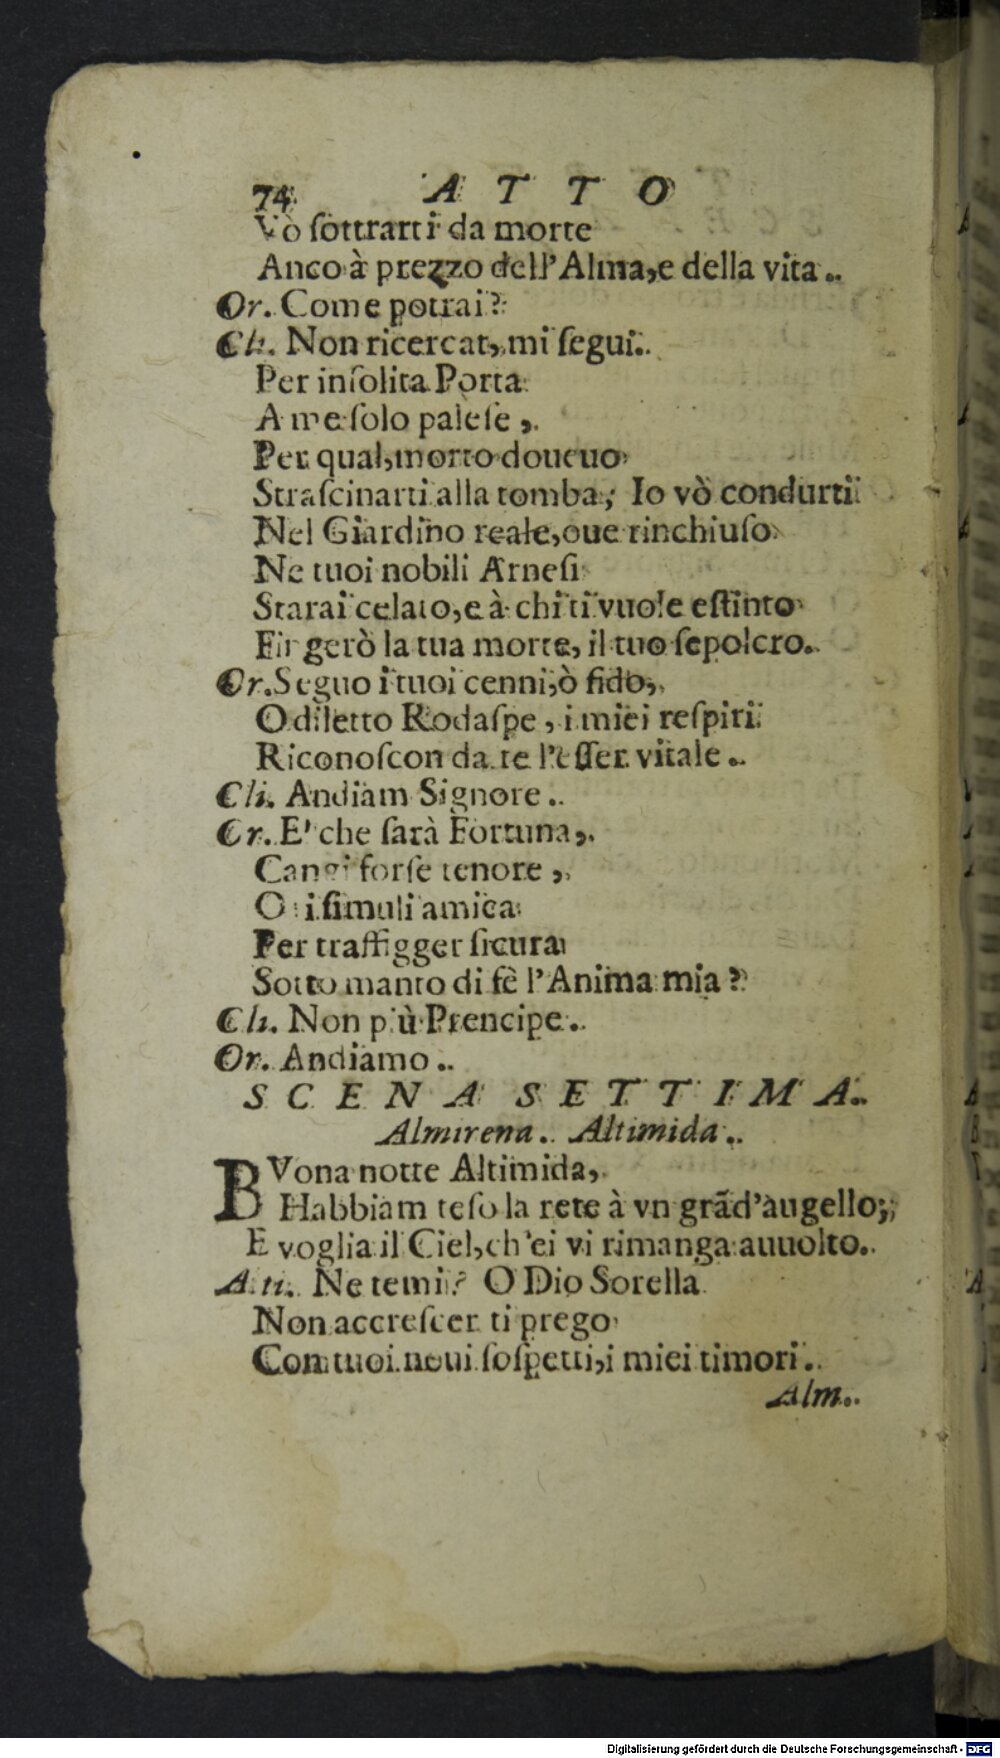 74 ATTO
Vò ſottrarti da morte
Anco à prezzo dell'Alma, e della vita.
Or. Come potrai?
Cli. Non ricercar, mi ſegui.
Per inſolita Porta
A me ſolo paleſe,
Per qual, morto doueuo
Straſcinarti alla tomba; Io vò condurti
Nel Giardino reale, oue rinchiuſo
Ne tuoi nobili Arneſi
Starai celato, e à chi ti vuole eſtinto
Fingerò la tua morte, il tuo ſepolcro.
Or. Seguo i tuoi cenni, ò fido,
O diletto Rodaſpe, i miei reſpiri
Riconoſcon da te l'eſſer vitale.
Cli. Andiam Signore.
Or. E' che ſarà Fortuna,
Cangi forſe tenore,
O ti ſimuli amica
Per traffigger ſicura
Sotto manto di fè l'Anima mia?
Cli. Non più Prencipe.
Or. Andiamo.
SCENA SETTIMA.
Almirena. Altimida.
BVona notte Altimida,
Habbiam teſo la rete à vn grãd'augello;
E voglia il Ciel, ch'ei vi rimanga auuolto.
Alti. Ne temi? O Dio Sorella
Non accreſcer ti prego
Con tuoi noui ſoſpetti, i miei timori.
Alm.
Digitalisierung gefördert durch die Deutsche Forschungsgemeinschaft - DFG